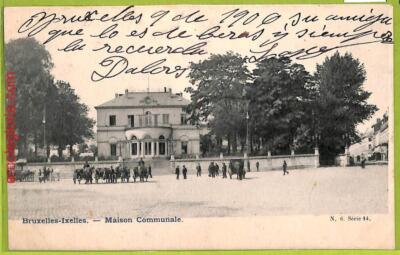 Bruxelles 9 de 1900, su amiga
que lo es de beras y siempre
la recuerda
Dalores
Bruxelles-Ixelles. — Maison Communale.
N. 6. Série 44.